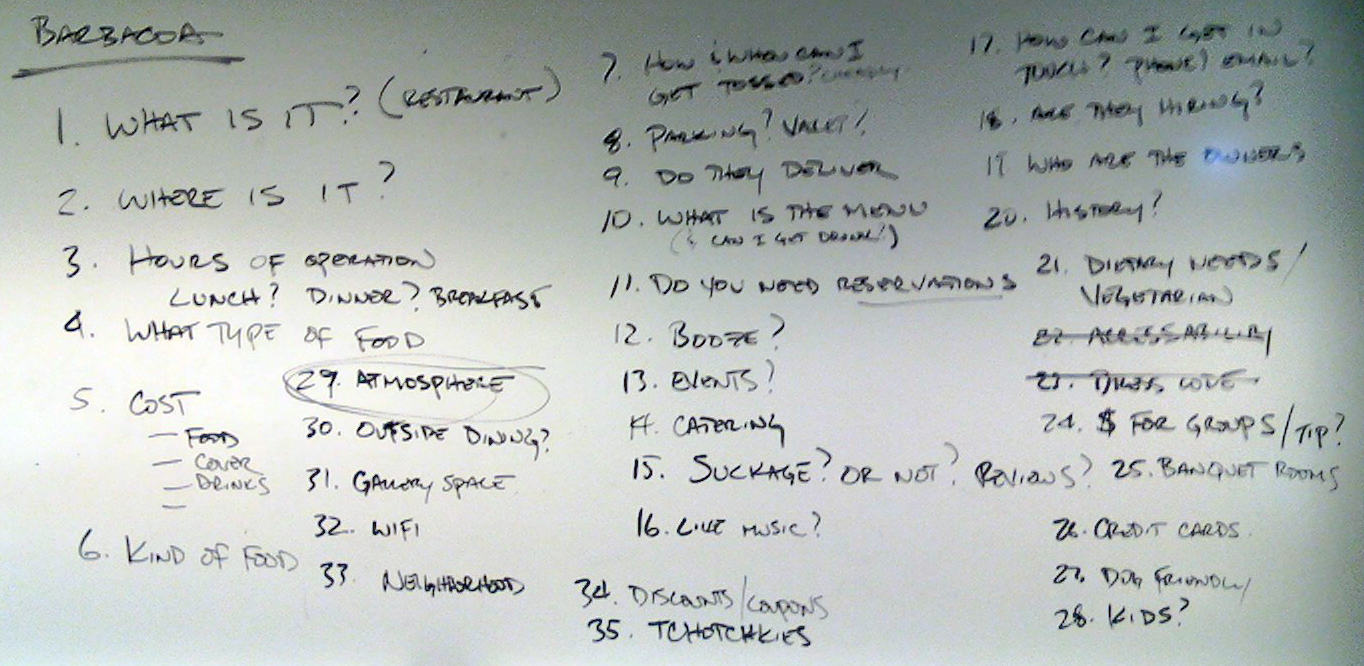 BARBACOA
1. WHAT IS IT? (RESTAURANT)
2. WHERE IS IT?
3. HOURS OF OPERATION
LUNCH? DINNER? BREAKFAST
4. WHAT TYPE OF FOOD
5. COST
— FOOD
— COVER
— DRINKS
—
6. KIND OF FOOD
29. ATMOSPHERE
30. OUTSIDE DINING?
31. GALLERY SPACE
32. WIFI
33 NEIGHBORHOOD
7. HOW & WHEN CAN I
GET TOSSED?
8. PARKING? VALET?
9. DO THEY DELIVER
10. WHAT IS THE MENU
(& CAN I GET DRUNK?)
11. DO YOU NEED RESERVATIONS
12. BOOZE?
13. EVENTS?
14. CATERING
15. SUCKAGE? OR NOT? REVIEWS?
16. LIVE MUSIC?
34. DISCOUNTS/COUPONS
35. TCHOTCHKIES
17. HOW CAN I GET IN
TOUCH? PHONE? EMAIL?
18. ARE THEY HIRING?
19 WHO ARE THE OWNERS
20. HISTORY?
21. DIETARY NEEDS/
VEGETARIAN
22. ACCESSABILITY
23. DRESS CODE
24. $ FOR GROUPS/TIP?
25. BANQUET ROOMS
26. CREDIT CARDS.
27. DOG FRIENDLY
28. KIDS?